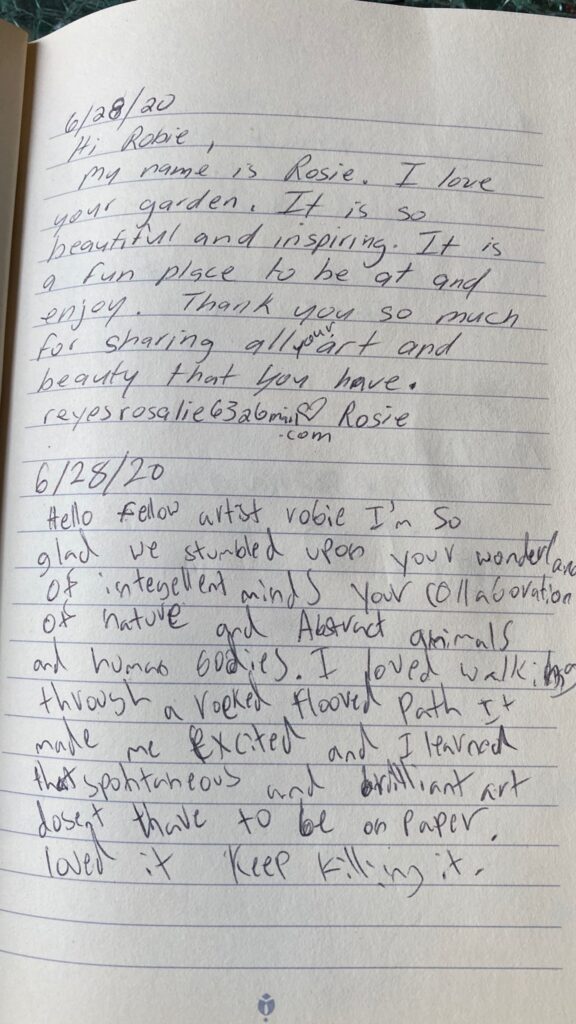 6/28/20
Hi Robie,
My name is Rosie. I love
your garden. It is so
beautiful and inspiring. It is
a fun place to be at and
enjoy. Thank you so much
for sharing all your art and
beauty that you have.
♡ Rosie
.com
6/28/20
Hello fellow artist robie I'm so
glad we stumbled upon your wonderland
of integellent minds your collaboration
of nature and Abstract animals
and human bodies. I loved walking
through a rocked flooved path It
made me Excited and I learned
that spontaneous and brilliant art
dosent thave to be on paper.
loved it Keep killing it.